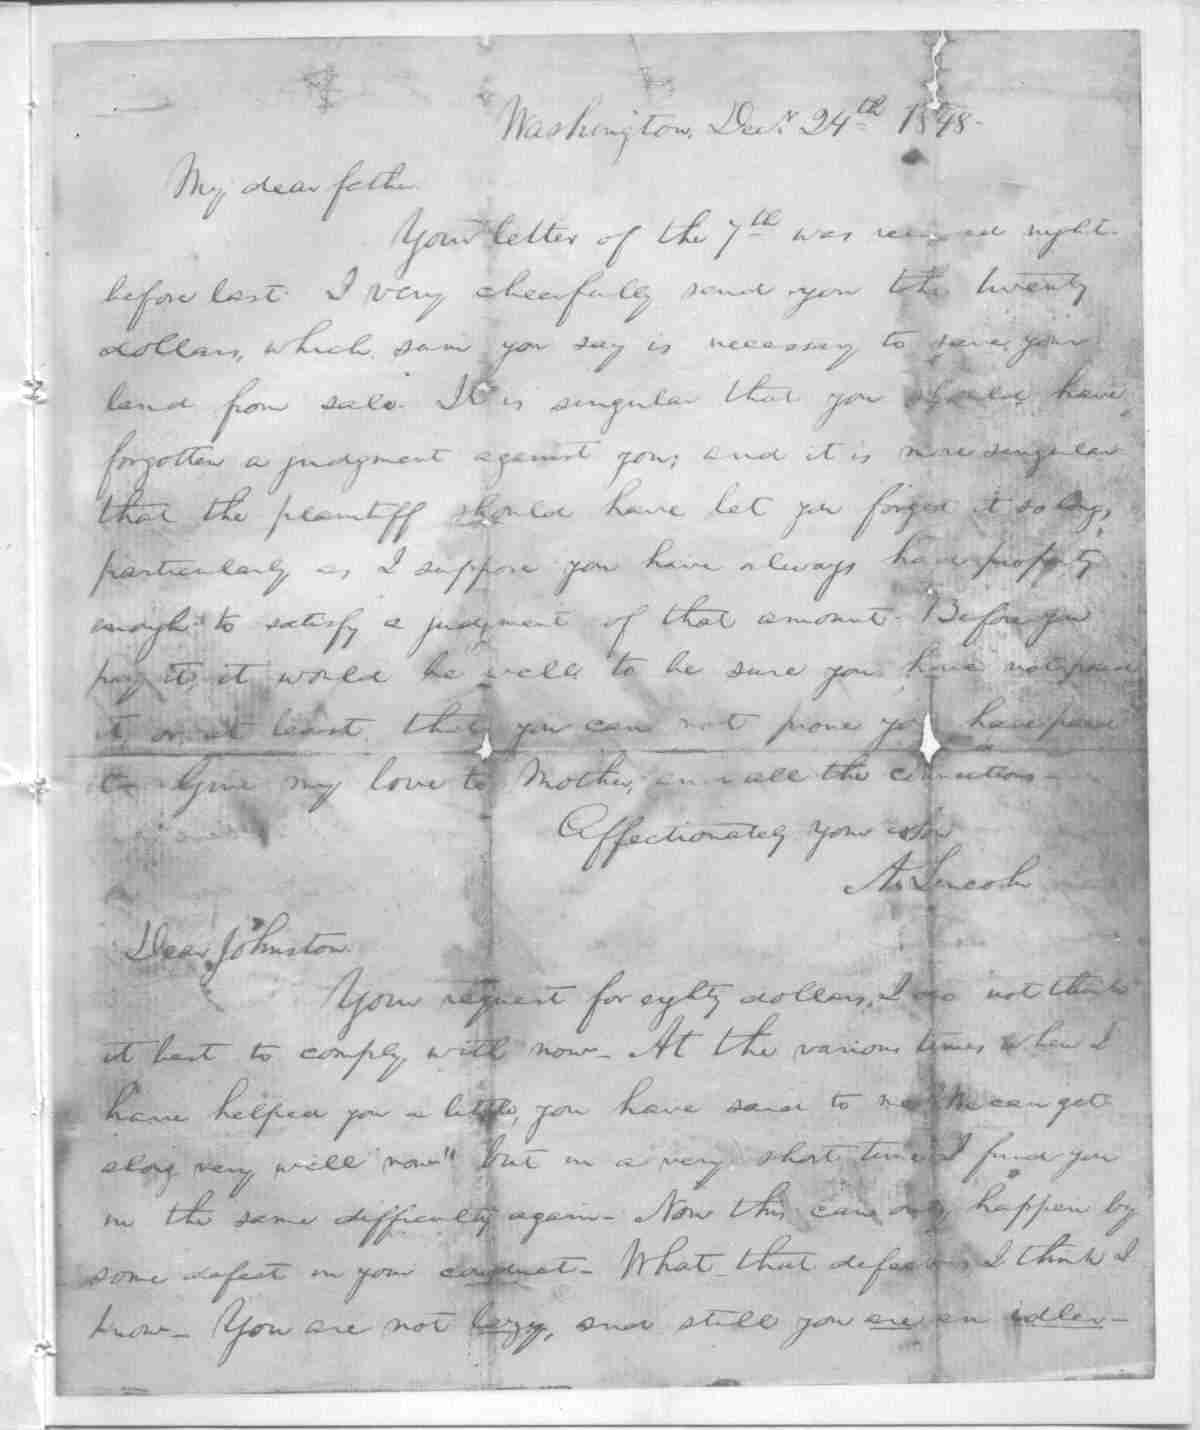 Washington, Decr. 24th 1848-
My dear father.
Your letter of the 7th was received night
before last. I very cheerfully send you the twenty
dollars, which sum you say is necessary to save your
land from sale. It is singular that you should have
forgotten a judgment against you; and it is more singular
that the plaintiff should have let you forget it so long,
particularly as I suppose you have always had property
enough to satisfy a judgment of that amount. Before you
pay it, it would be well to be sure you have not paid
it; or, at least, that you can not prove you have paid
it- Give my love to Mother, and all the connections-
Affectionately your son
A. Lincoln
Dear Johnston.
Your request for eighty dollars, I do not think
it best to comply with now- At the various times when I
have helped you a little, you have said to me "We can get
along very well now" but in a very short time I find you
in the same difficulty again- Now this can only happen by
some defect in your conduct- What that defect is, I think I
know- You are not lazy, and still you are an idler-